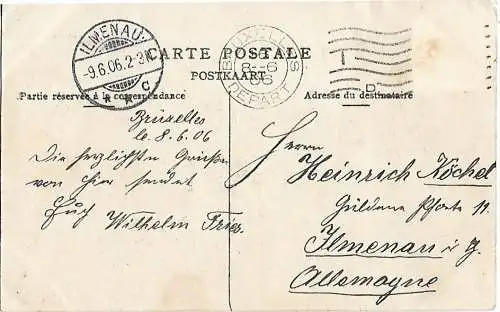 ILMENAU.
-9.6.06.2-3N.
* * C
BRUXELLES
8-6
06
DEPART
CARTE POSTALE
POSTKAART
Partie réservée à la correspondance
Adresse du destinataire
D
Brüsseles
le. 8. 6. 06
Die herzlichsten Grüße
von hier sendet
Euch
Wilhelm Fries.
Herrn
Heinrich Köchel
Güldene Pforte 11.
Ilmenau i
Allemagne